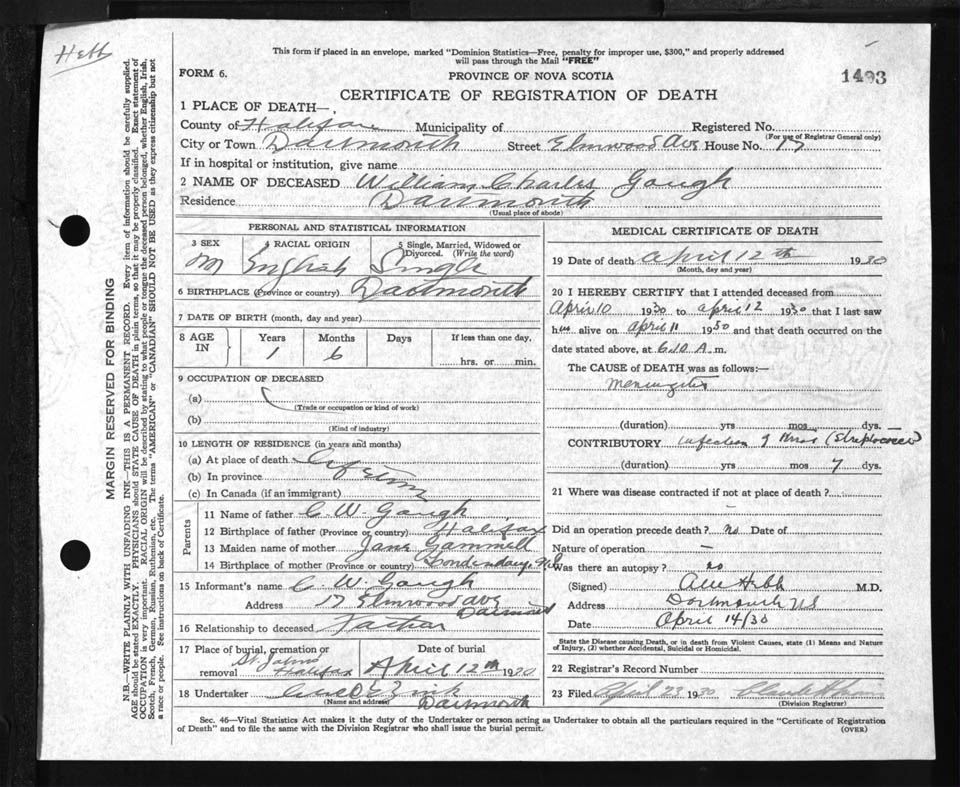 Hebb
This form if placed in an envelope, marked "Dominion Statistics—Free, penalty for improper use, $300," and properly addressed
will pass through the Mail "FREE"
FORM 6.
PROVINCE OF NOVA SCOTIA
1493
CERTIFICATE OF REGISTRATION OF DEATH
1 PLACE OF DEATH—
County of Halifax Municipality of Registered No.
(For use of Registrar General only)
City or Town Dartmouth Street Elmwood Ave House No. 17
If in hospital or institution, give name
2 NAME OF DECEASED William Charles Gough
Residence Dartmouth
(Usual place of abode)
PERSONAL AND STATISTICAL INFORMATION
3 SEX 4 RACIAL ORIGIN 5 Single, Married, Widowed or
Divorced. (Write the word)
M English Single
6 BIRTHPLACE (Province or country) Dartmouth
7 DATE OF BIRTH (month, day and year)
8 AGE IN Years Months Days If less than one day,
1 6 hrs. or min.
9 OCCUPATION OF DECEASED
(a)
(Trade or occupation or kind of work)
(b)
(Kind of industry)
10 LENGTH OF RESIDENCE (in years and months)
(a) At place of death Lifetime
(b) In province
(c) In Canada (if an immigrant)
Parents
11 Name of father C. W. Gough
12 Birthplace of father (Province or country) Halifax
13 Maiden name of mother Jane Gammell
14 Birthplace of mother (Province or country)
15 Informant's name C. W. Gough
Address 17 Elmwood Ave
16 Relationship to deceased Father
17 Place of burial, cremation or removal St. Johns Halifax
Date of burial April 12th 1930
18 Undertaker
(Name and address) Dartmouth
MEDICAL CERTIFICATE OF DEATH
19 Date of death April 12th 1930
(Month, day and year)
20 I HEREBY CERTIFY that I attended deceased from
April 10 1930 to April 12 1930 that I last saw
him alive on April 11 1930 and that death occurred on the
date stated above, at 6.10 A.m.
The CAUSE OF DEATH was as follows:—
Meningitis
(duration) yrs mos dys. —
CONTRIBUTORY infection of (Streptococcus)
(duration) yrs mos 7 dys.
21 Where was disease contracted if not at place of death?
—
Did an operation precede death? No Date of
Nature of operation —
Was there an autopsy? no
(Signed) Hebb M.D.
Address Dartmouth NS
Date April 14/30
State the Disease causing Death, or in death from Violent Causes, state (1) Means and Nature
of Injury, (2) whether Accidental, Suicidal or Homicidal.
22 Registrar's Record Number
23 Filed April 23 1930
(Division Registrar)
Sec. 46—Vital Statistics Act makes it the duty of the Undertaker or person acting as Undertaker to obtain all the particulars required in the "Certificate of Registration
of Death" and to file the same with the Division Registrar who shall issue the burial permit.
(OVER)
MARGIN RESERVED FOR BINDING
N.B.—WRITE PLAINLY WITH UNFADING INK—THIS IS A PERMANENT RECORD. Every item of information should be carefully supplied.
AGE should be stated EXACTLY. PHYSICIANS should STATE CAUSE OF DEATH in plain terms, so that it may be properly classified. Exact statement of
OCCUPATION is very important. RACIAL ORIGIN will be described by stating to what people or tongue the deceased person belonged, whether English, Irish,
Scotch, French, German, Russian, Ruthenian, etc. The terms "AMERICAN" or "CANADIAN" SHOULD NOT BE USED as they express citizenship but not
a race or people. See instructions on back of Certificate.